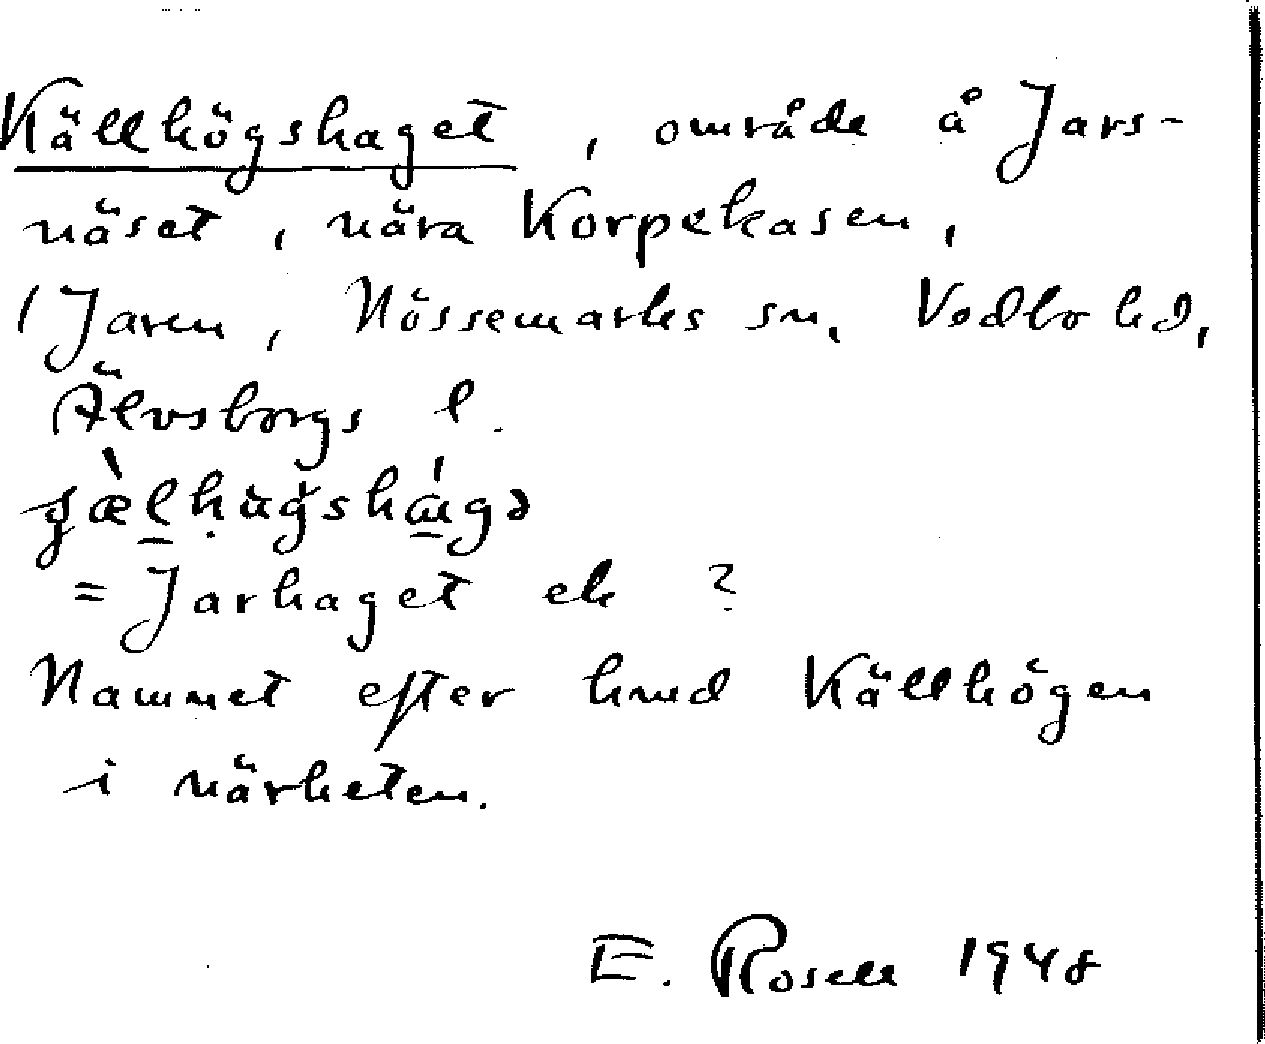 Källhögshaget, område å Jars-
näset, nära Korpekasen,
/ Jaren, Nössemarks sn, Vedbo hd,
Älvsborgs l.
= Jarhaget ek ?
Namnet efter hmd Källhögen
i närheten.
E. Rosell 1948